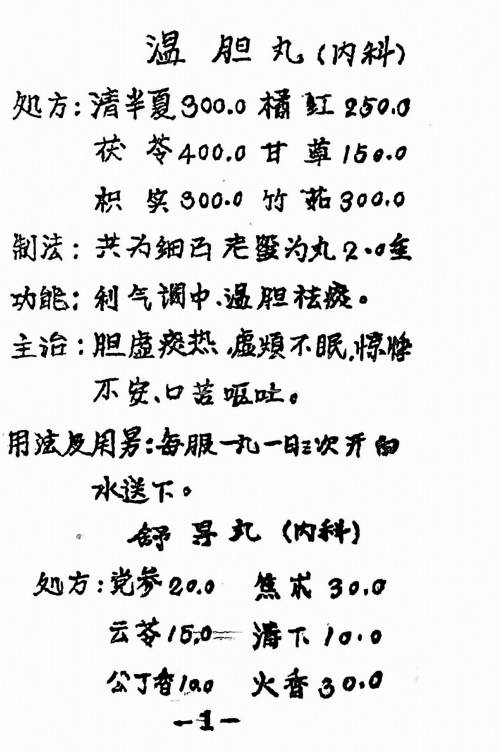 温胆丸(内科)
处方:清半夏300.0 橘红250.0
茯苓400.0 甘草150.0
枳实300.0 竹茹300.0
制法:共为细面老蜜为丸2.0重
功能:利气调中、温胆祛痰。
主治:胆虚痰热,虚烦不眠,惊悸
不安、口苦呕吐。
用法及用男:每服一丸一日三次开白
水送下。
舒丸(内科)
处方:党参20.0 焦术30.0
云苓15.0 下10.0
公丁香10.0 火香30.0
-1-